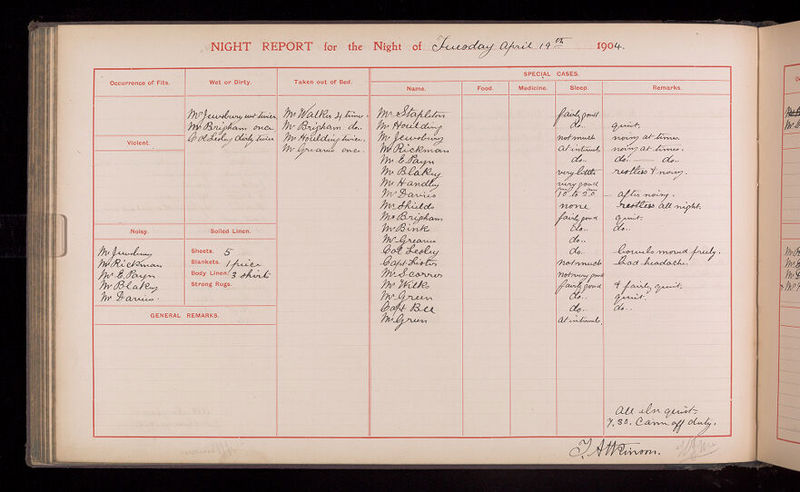 NIGHT REPORT for the Night of Tuesday April 19th 1904.
SPECIAL CASES.
Occurrence of Fits. Wet or Dirty. Taken out of Bed. Name. Food. Medicine. Sleep. Remarks.
Mr Jewsbury wet twice
Mr Brigham once
Col Lesley dirty twice
Mr Walker 4 times.
Mr Brigham do.
Mr Houlding twice.
Mr Greaves once.
Violent.
Noisy.
Mr Jewsbury
Mr Rickman
Mr E. Payn
Mr Blakey
Mr Davies.
Soiled Linen.
Sheets. 5
Blankets. 1 piece
Body Linen. 3 shirts
Strong Rugs.
GENERAL REMARKS.
Mr Stapleton fairly good
Mr Houlding do.. quiet.
Mr Jewsbury not much noisy at times.
Mr Rickman at intervals noisy at times.
Mr E. Payn do.. do. do.
Mr Blakey very little restless & noisy.
Mr Handley very good
Mr Davies 10 to 2.0 after noisy.
Mr Shields none restless all night.
Mr Brigham fairly good quiet.
Mr Bink do.. do..
Mr Greaves do..
Col Lesley do. bowels moved freely.
Capt not much bad headache.
Mr Scorror not very good
Mr Wilks fairly good & fairly quiet.
Mr Green do.. quiet.
Capt Bell do.. do..
Mr at intervals
All else quiet
7.30. Came off duty.
T. Atkinson.